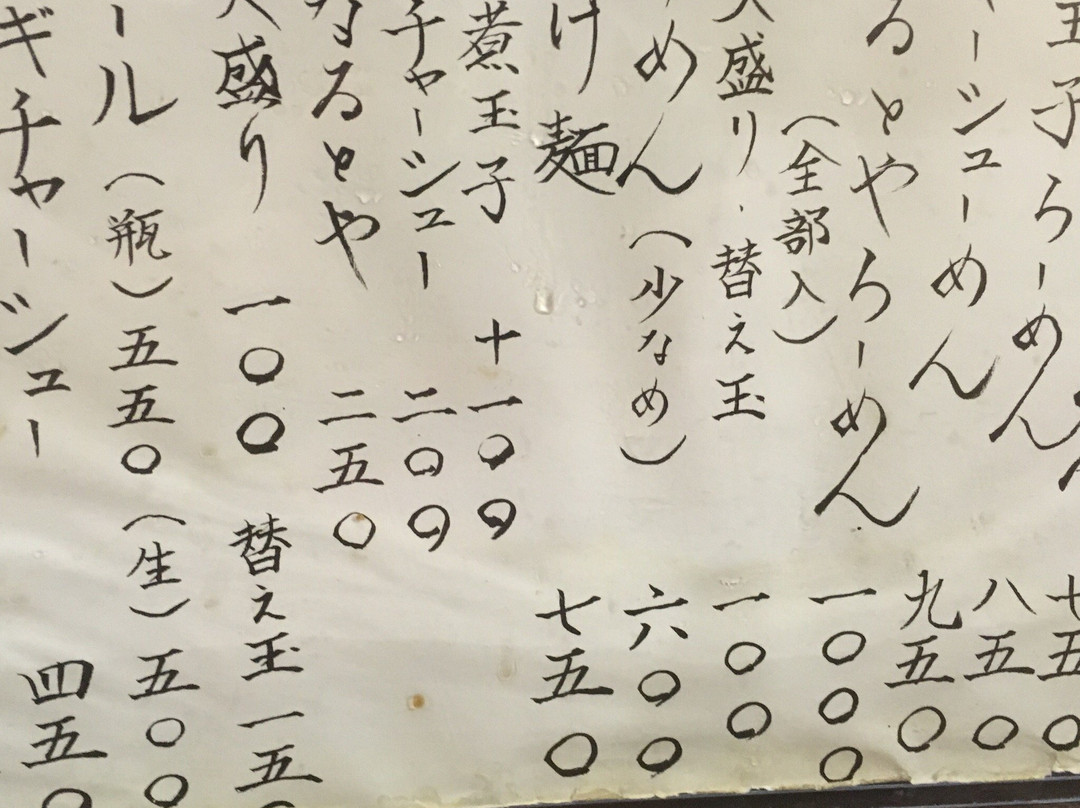 ん 七五〇
玉子らーめん 八五〇
ーシューめん 九五〇
るとやらーめん 一〇〇〇
(全部入)
大盛り・替え玉 一〇〇
めん(少なめ) 六〇〇
け麺 七五〇
煮玉子 十一〇〇
チャーシュー 二〇〇
なるとや 二五〇
大盛り 一〇〇 替え玉 一五〇
ール(瓶)五五〇(生)五〇〇
ギチャーシュー 四五〇